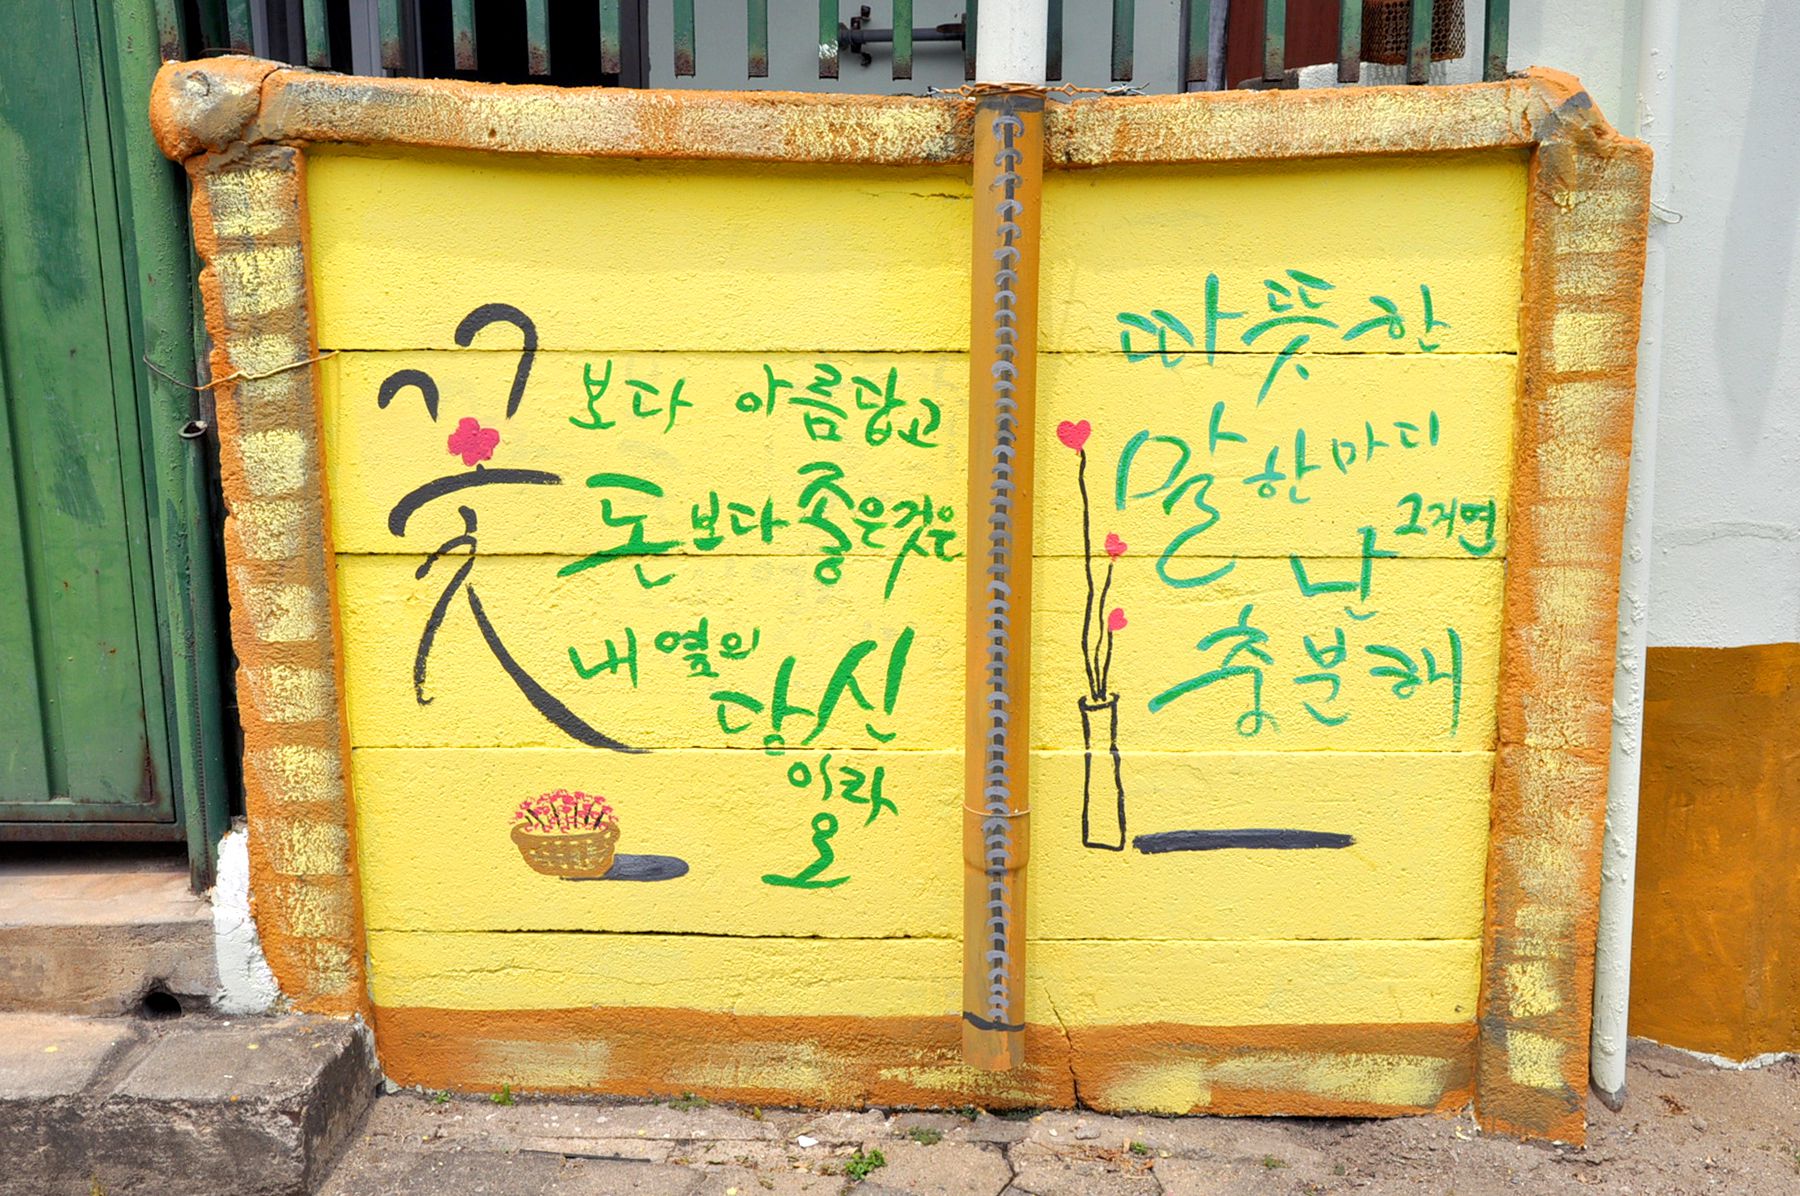 꽃보다 아름답고
돈보다 좋은것은
내 옆의
당신
이라
오
따뜻한
말 한마디
그거면
난
충분해